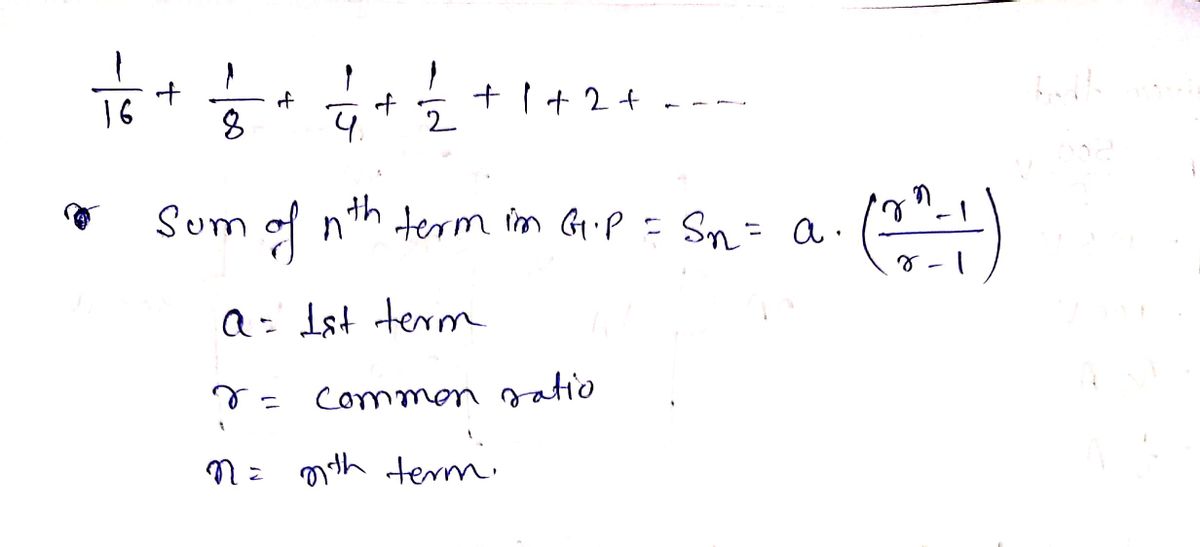 1/16 + 1/8 + 1/4 + 1/2 + 1 + 2 + ----
Sum of nth term in G.P = Sn = a. (r^n - 1 / r - 1)
a = 1st term
r = common ratio
n = nth term.